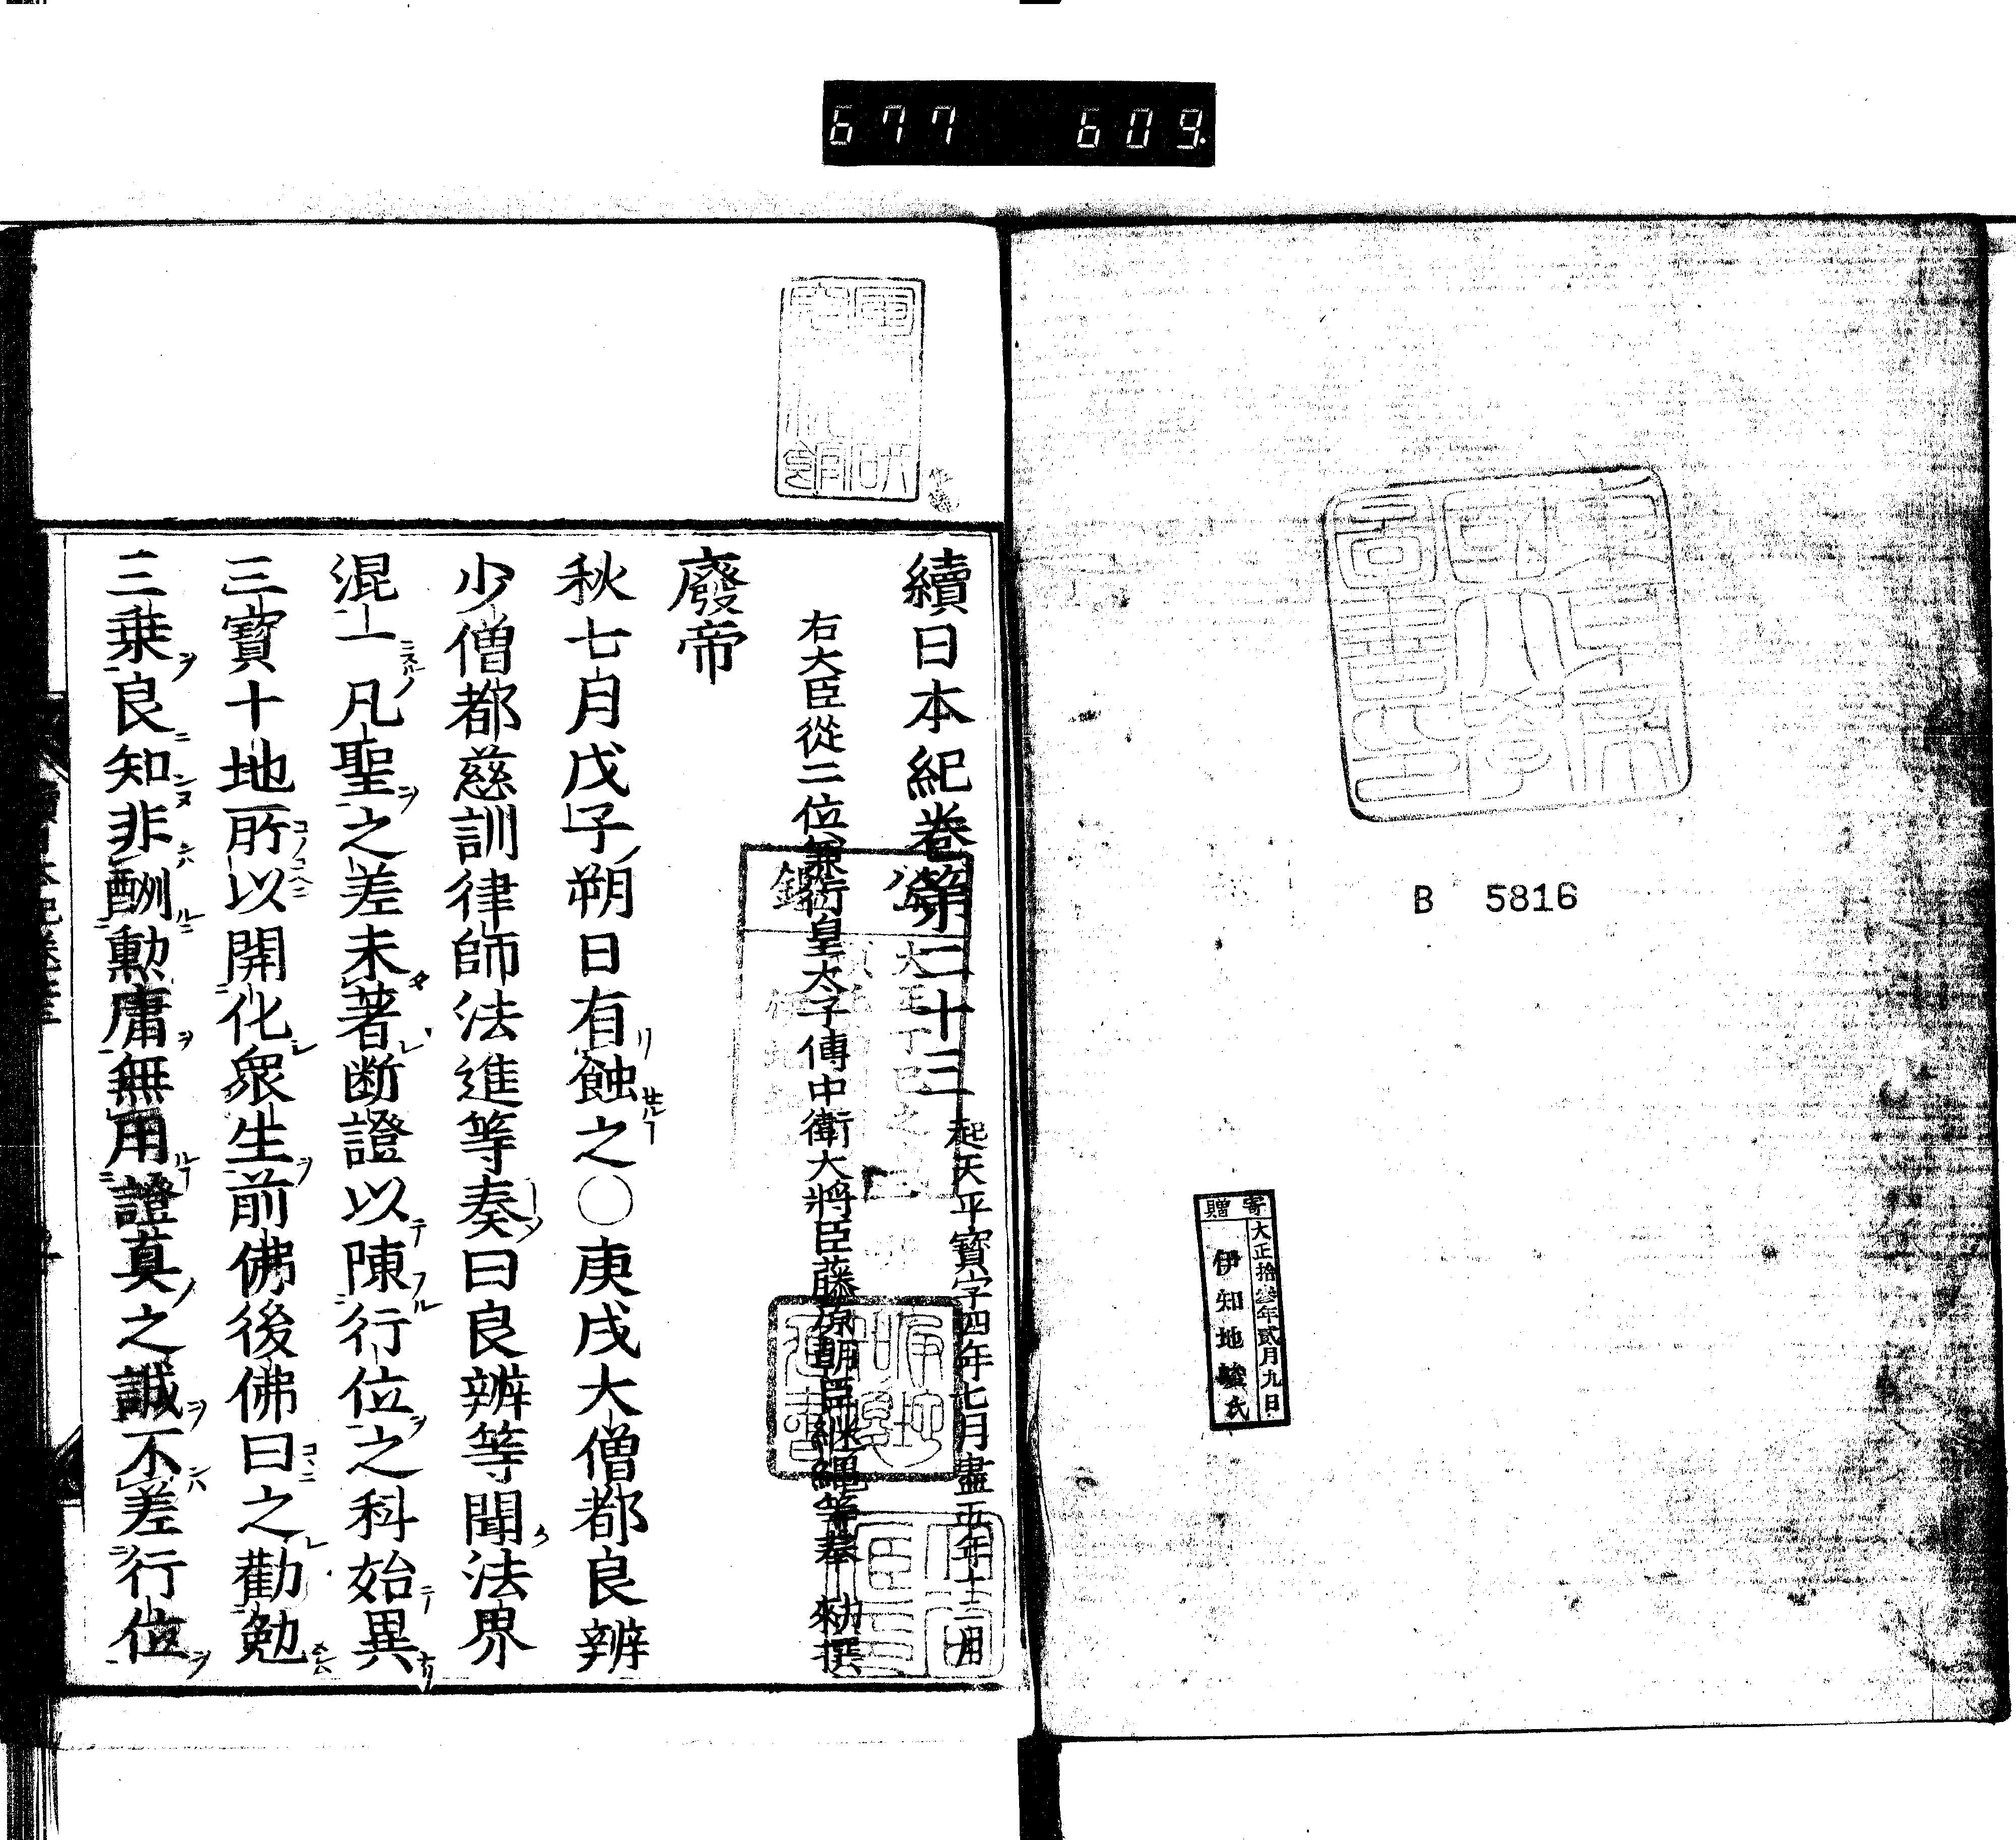 677 609
東京帝國大學圖書印
B 5816
寄贈
大正拾參年貳月九日
伊知地
氏
續日本紀卷第二十三 起天平寶字四年七月盡五年十二月
右大臣從二位兼行皇太子傅中衛大將臣藤原朝臣継繩等奉 勅撰
廢帝
秋七月戊子朔日有蝕之○庚戌大僧都良辨
少僧都慈訓律師法進等奏曰良辨等聞法界
混一凡聖之差未著断證以陳行位之科始異
三寶十地所以開化衆生前佛後佛曰之勸勉
三乗良知非酬勲庸無用證真之誠不差行位